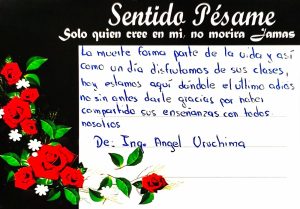 Sentido Pésame
Solo quien cree en mi, no morira Jamas
La muerte forma parte de la vida y así
como un día disfrutamos de sus clases,
hoy estamos aquí dándole el último adios
no sin antes darle gracias por haber
compartido sus enseñanzas con todos
nosotros
De: Ing. Angel Uruchima